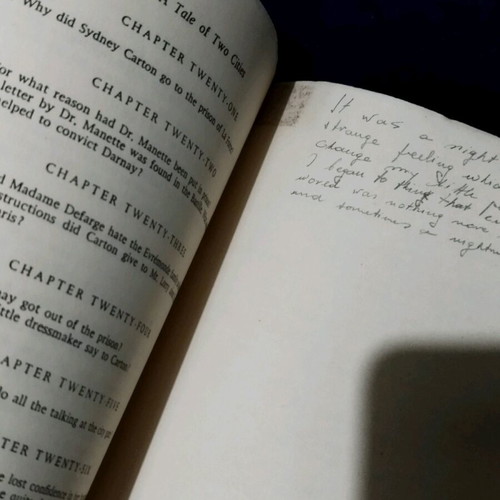 A Tale of Two Cities
Why did Sydney Carton go to the prison of La Force?
CHAPTER TWENTY-ONE
For what reason had Dr. Manette been put in prison?
letter by Dr. Manette was found in the Bastille
helped to convict Darnay?
CHAPTER TWENTY-TWO
CHAPTER TWENTY-THREE
Madame Defarge hate the Evrémonde
structions did Carton give to Mr. Lorry
aris?
CHAPTER TWENTY-FOUR
nay got out of the prison?
ittle dressmaker say to Carton?
HAPTER TWENTY-FIVE
do all the talking at the
TER TWENTY-SIX
e lost confidence
It was a night
strange feeling
change my
I began to that
world was nothing more
and sometimes a nightm